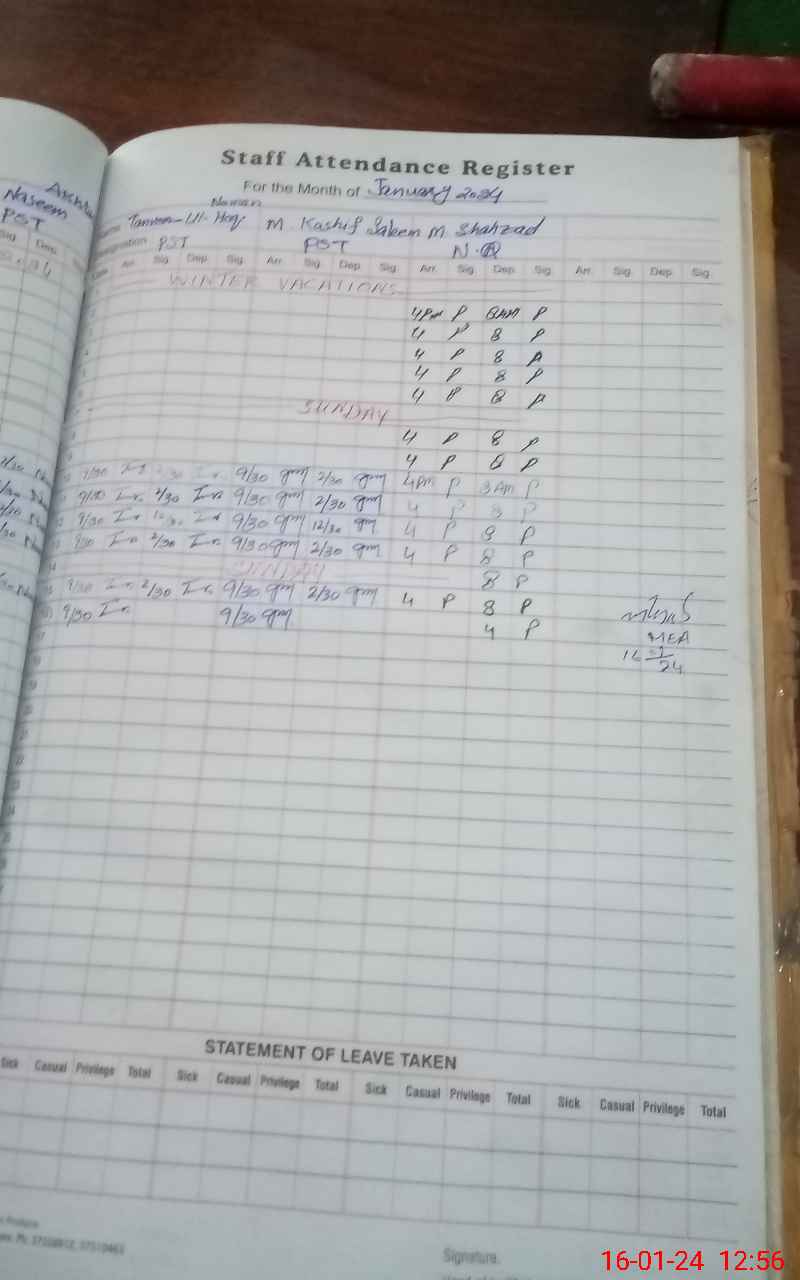 Staff Attendance Register
For the Month of January 2024
Naseem
PST
Nawan
Name Tanveer-Ul-Haq M Kashif Saleem M Shahzad
Designation PST PST N.Q
Date Arr. Sig. Dep. Sig. Arr. Sig. Dep. Sig. Arr. Sig. Dep. Sig. Arr. Sig. Dep. Sig.
WINTER VACATIONS
4PM P 8AM P
4 P 8 P
4 P 8 P
4 P 8 P
4 P 8 P
SUNDAY
4 P 8 P
4 P 8 P
9/30 9/30 2/30 4PM P 8AM P
9/30 2/30 9/30 2/30 4 P 8 P
9/30 9/30 12/30 4 P 8 P
9/30 2/30 9/30 2/30 4 P 8 P
SUNDAY 8 P
9/30 2/30 9/30 2/30 4 P 8 P
9/30 9/30 4 P
MEA
16 1
24
STATEMENT OF LEAVE TAKEN
Sick Casual Privilege Total Sick Casual Privilege Total Sick Casual Privilege Total Sick Casual Privilege Total
Signature.
16-01-24 12:56